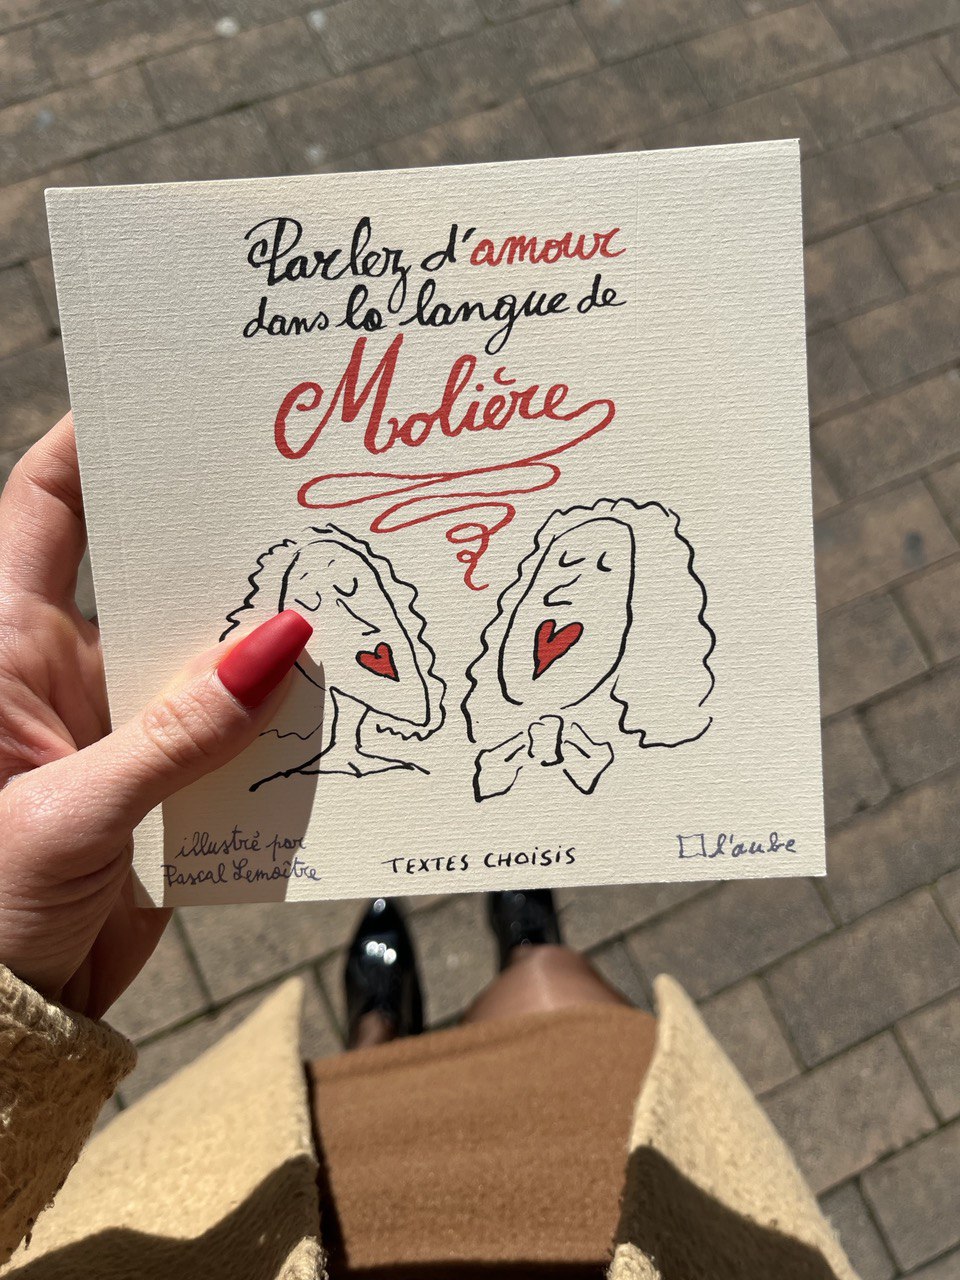 Parlez d'amour
dans la langue de
Molière
illustré par
Pascal Lemaître
TEXTES CHOISIS
l'aube